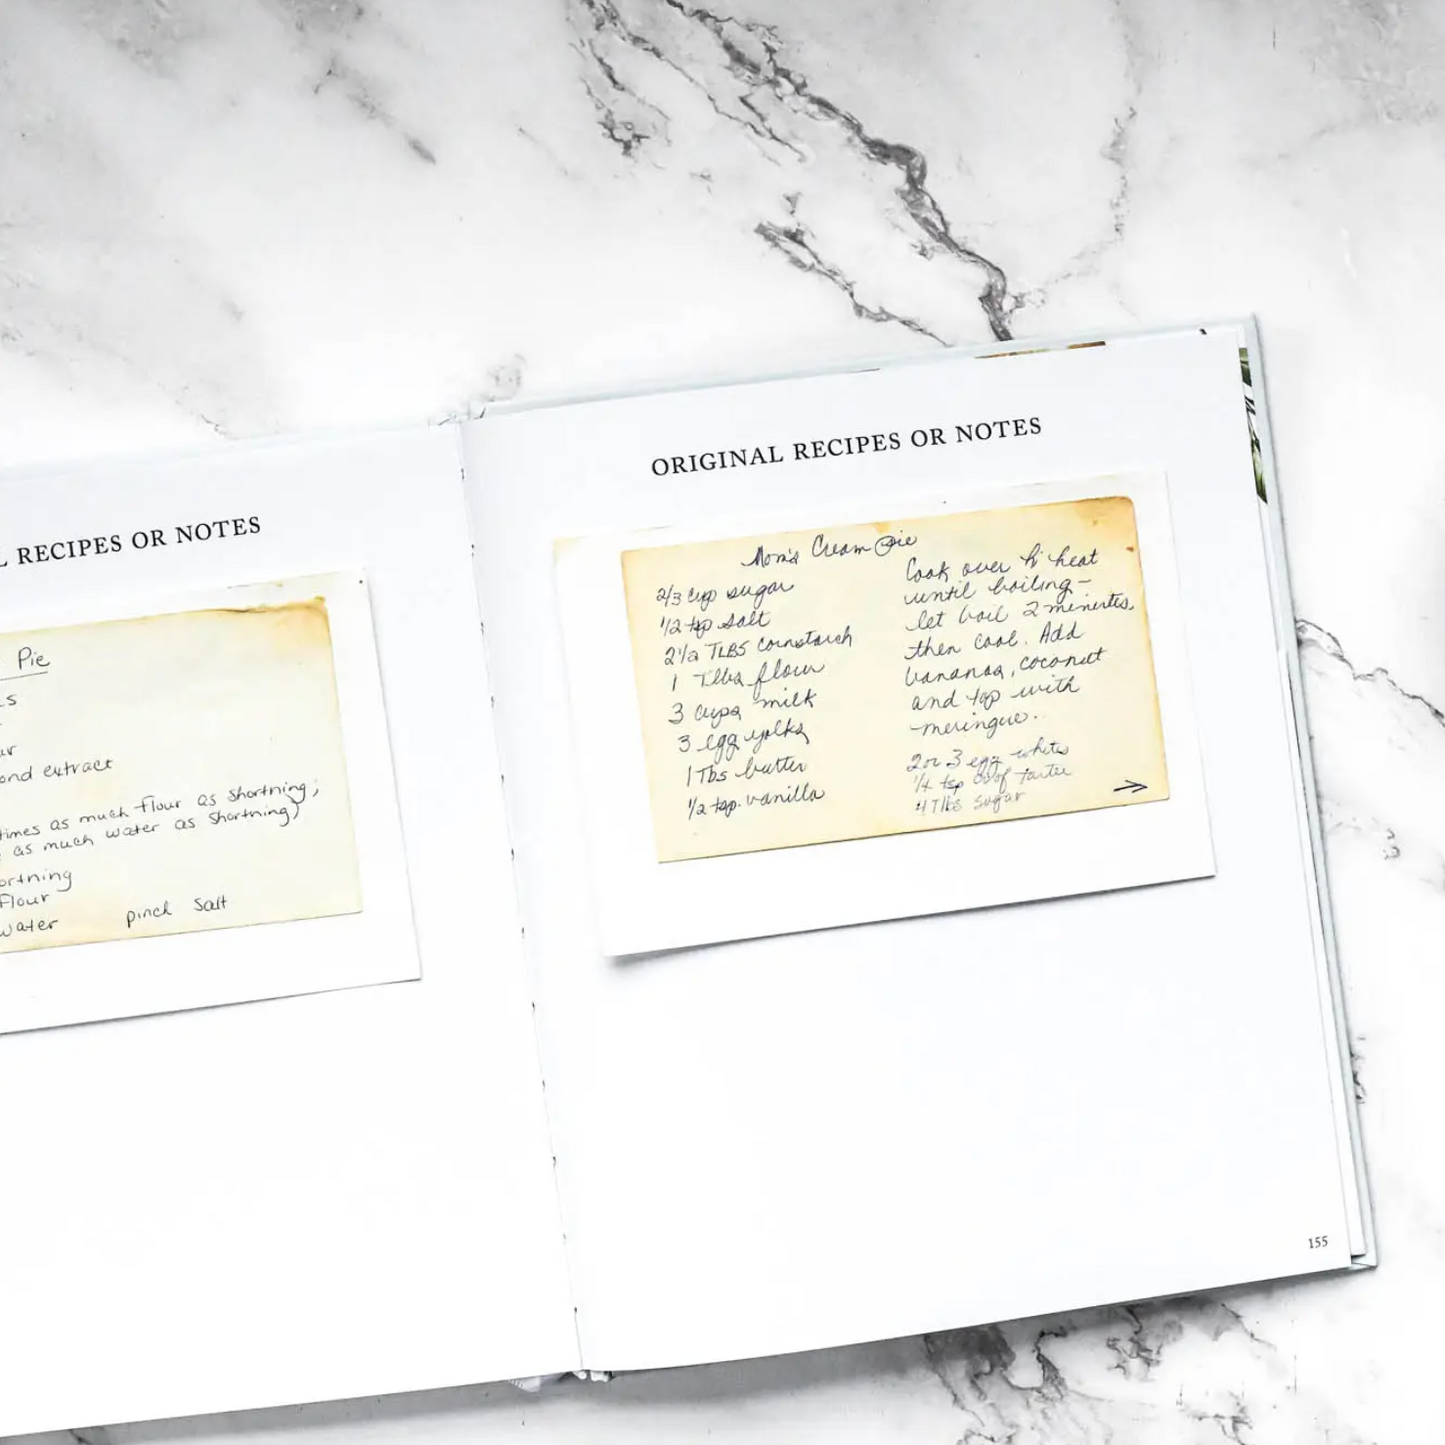 RECIPES OR NOTES
Pie
ond extract
times as much flour as shortning;
as much water as shortning)
ortning
flour
water pinch salt
ORIGINAL RECIPES OR NOTES
Mom's Cream Pie
2/3 cup sugar
1/2 tsp salt
2 1/2 TLBS cornstarch
1 Tlbs flour
3 cups milk
3 egg yolks
1 Tbs butter
1/2 tsp. vanilla
Cook over hi heat
until boiling-
let boil 2 minutes,
then cool. Add
bananas, coconut
and top with
meringue.
2 or 3 egg whites
1/4 tsp of tarter
4 Tlbs sugar
155